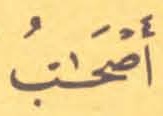 أَصۡحَٰبُ